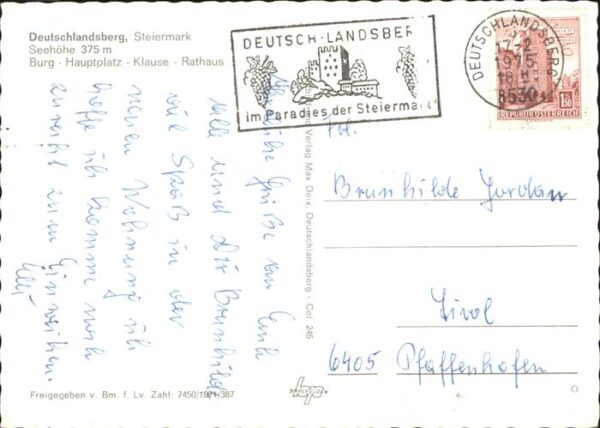 Deutschlandsberg, Steiermark
Seehöhe 375 m
Burg - Hauptplatz - Klause - Rathaus
DEUTSCH-LANDSBER
im Paradies der Steiermark
DEUTSCHLANDSBERG
17.-2.
1975
18
8530
1.50
REPUBLIK ÖSTERREICH
Grüße an Euch
alle und Dir Brunhilde
viel Spaß in der
neuen Wohnung ich
hoffe ich komme noch
zurecht zum Einweihen.
Verlag Max Deix, Deutschlandsberg - Col. 245
Frl.
Brunhilde Jordan
Tirol
6405 Pfaffenhofen
Freigegeben v. Bm. f. Lv. Zahl: 7450/1971/387.